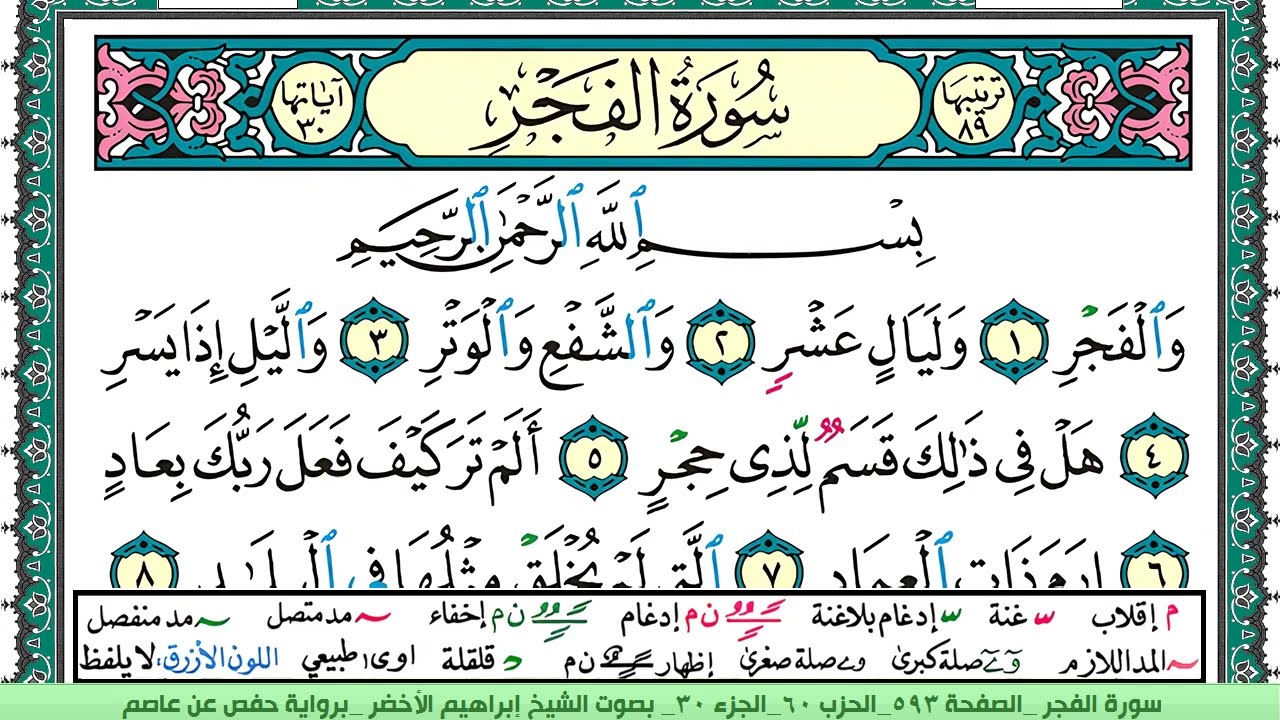 ترتيبها ٨٩ سُورَةُ الفَجْرِ آياتها ٣٠
بِسْمِ ٱللَّهِ ٱلرَّحْمَٰنِ ٱلرَّحِيمِ
وَٱلْفَجْرِ ١ وَلَيَالٍ عَشْرٍ ٢ وَٱلشَّفْعِ وَٱلْوَتْرِ ٣ وَٱلَّيْلِ إِذَا يَسْرِ
٤ هَلْ فِى ذَٰلِكَ قَسَمٌ لِّذِى حِجْرٍ ٥ أَلَمْ تَرَ كَيْفَ فَعَلَ رَبُّكَ بِعَادٍ
٦ إِرَمَ ذَاتِ ٱلْعِمَادِ ٧ ٱلَّتِى لَمْ يُخْلَقْ مِثْلُهَا فِى ٱلْبِلَٰدِ ٨
م إقلاب س غنة س إدغام بلاغنة ن م إدغام ن م إخفاء مد متصل مد منفصل
المد اللازم و ے صلة كبرى و ے صلة صغرى إظهار ن م قلقلة اوى طبيعي اللون الأزرق: لا يلفظ
سورة الفجر _الصفحة ٥٩٣_الحزب ٦٠_الجزء ٣٠_ بصوت الشيخ إبراهيم الأخضر _برواية حفص عن عاصم